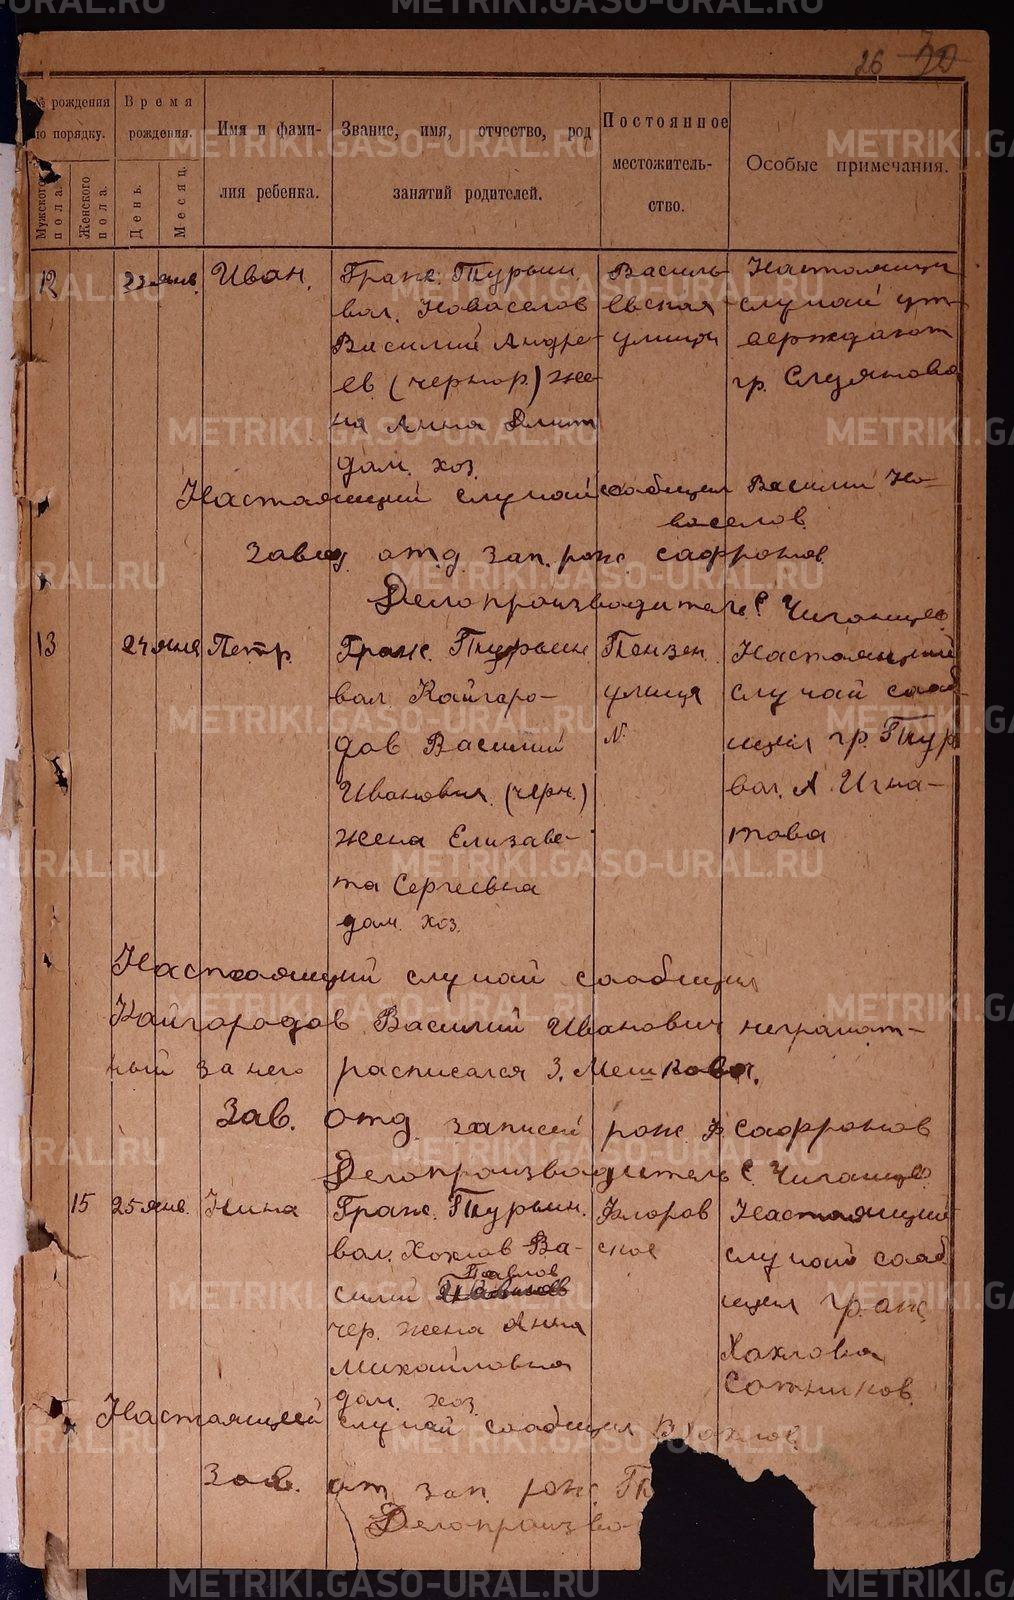 26 30
№ рождения по порядку.
Мужского пола.
Женского пола.
Время рождения.
День.
Месяц.
Имя и фамилия ребенка.
Звание, имя, отчество, род занятий родителей.
Постоянное местожительство.
Особые примечания.
12 23 янв. Иван.
Граж. Турьин
вол. Новоселов
Василий Андре-
ев (чернор.) же-
на Анна Дмит
дом. хоз.
Василь-
евская
улица
Настоящий
случай ут-
верждают
гр.
Настоящий случай сообщил Василий Но-
воселов.
Завед. отд. зап. рож. Сафронов
Делопроизводитель С.
13 24 янв Петр.
Граж. Турьин
вол. Кайгаро-
дов Василий
Иванович. (черн.)
жена Елизаве-
та Сергеевна
дом. хоз.
Пензен.
улица
№
Настоящий
случай сооб-
щил гр. Тур
вол. А. Игна-
това
Настоящий случай сообщил
Кайгородов Василий Иванович неграмот-
ный за него расписался З. Мешкова.
Зав. отд. записей рож. Ф Сафронов
Делопроизводитель С.
15 25 янв. Нина
Граж. Турьин.
вол. Хохлов Ва-
Павлов
силий
чер. жена Анна
Михайловна
дом. хоз.
Флоров
ское
Настоящий
случай сооб
щил граж
Хохлова
Сотников.
Настоящий случай сообщил В Хохлов.
Зав. от зап. рож.
Делопроизво
METRIKI.GASO-URAL.RU